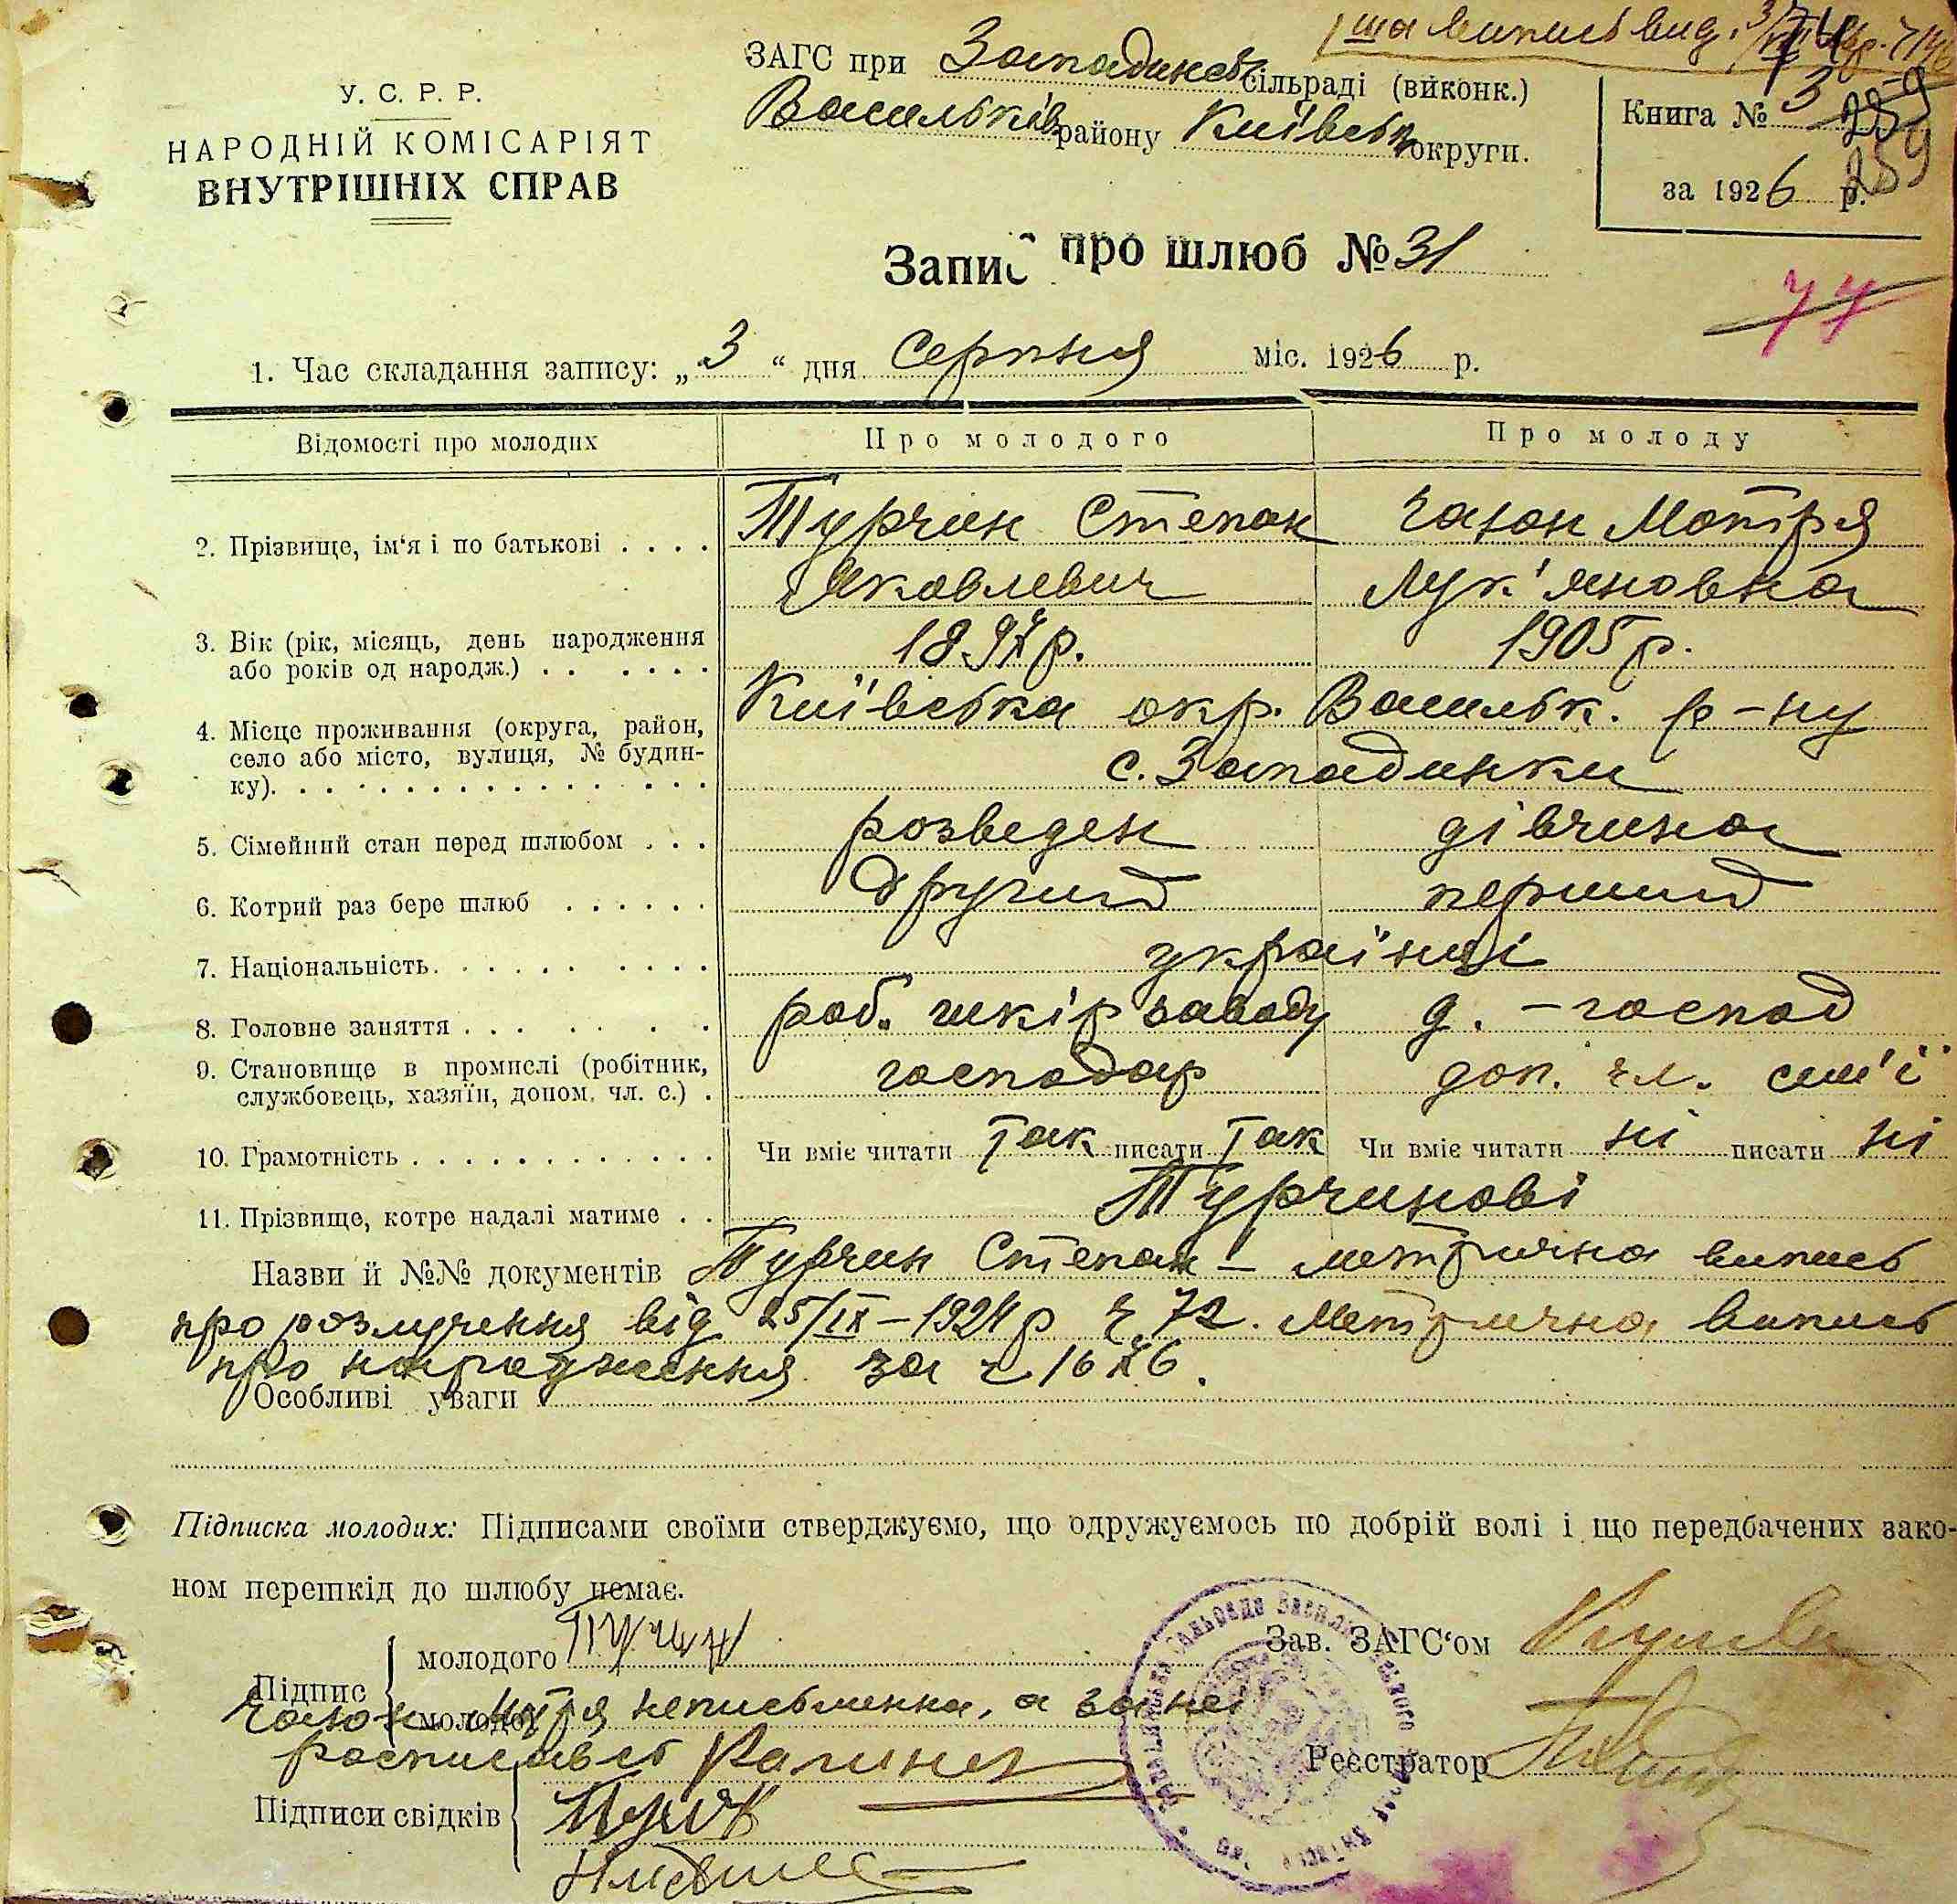 1ша випись вид.
У. С. Р. Р.
НАРОДНІЙ КОМІСАРІЯТ
ВНУТРІШНІХ СПРАВ
ЗАГС при Западинськ сільраді (виконк.)
Васильків району Київськ округи.
Книга № 3
259
259
за 1926 р.
Запис про шлюб № 31
77
1. Час складання запису: „3“ дня Серпня міс. 1926 р.
Відомості про молодих Про молодого Про молоду
2. Прізвище, ім‘я і по батькові . . . . Турчин Степан Чазон Мотря
Яковлевич Лук'яновна
3. Вік (рік, місяць, день народження 1897 р. 1905 р.
або років од народж.) . . . . . . .
4. Місце проживання (округа, район, Київська окр. Васильк. р-ну
село або місто, вулиця, № будин- с. Западинки
ку). . . . . . . . . . . . . . .
5. Сімейний стан перед шлюбом . . . розведен дівчина
6. Котрий раз бере шлюб . . . . . . другий перший
7. Національність. . . . . . . . . . українці
8. Головне заняття . . . . . . . . роб. шкір заводу д. - господ
9. Становище в промислі (робітник, господар доп. чл. сим'ї
службовець, хазяїн, допом. чл. с.) .
10. Грамотність . . . . . . . . . . . . . Чи вміє читати так писати так Чи вміє читати ні писати ні
11. Прізвище, котре надалі матиме . . Турчинові
Назви й №№ документів Турчин Степан – метрична випись
про розлучення від 25/IX – 1924 р ч. 72. Метрична випись
про народження за ч
Особливі уваги
Підписка молодих: Підписами своїми стверджуємо, що одружуємось по добрій волі і що передбачених зако-
ном перешкід до шлюбу немає.
Підпис молодого Зав. ЗАГС‘ом
молодої Чазон Мотря неписьменна, а за неї
росписавсь Реєстратор
Підписи свідків